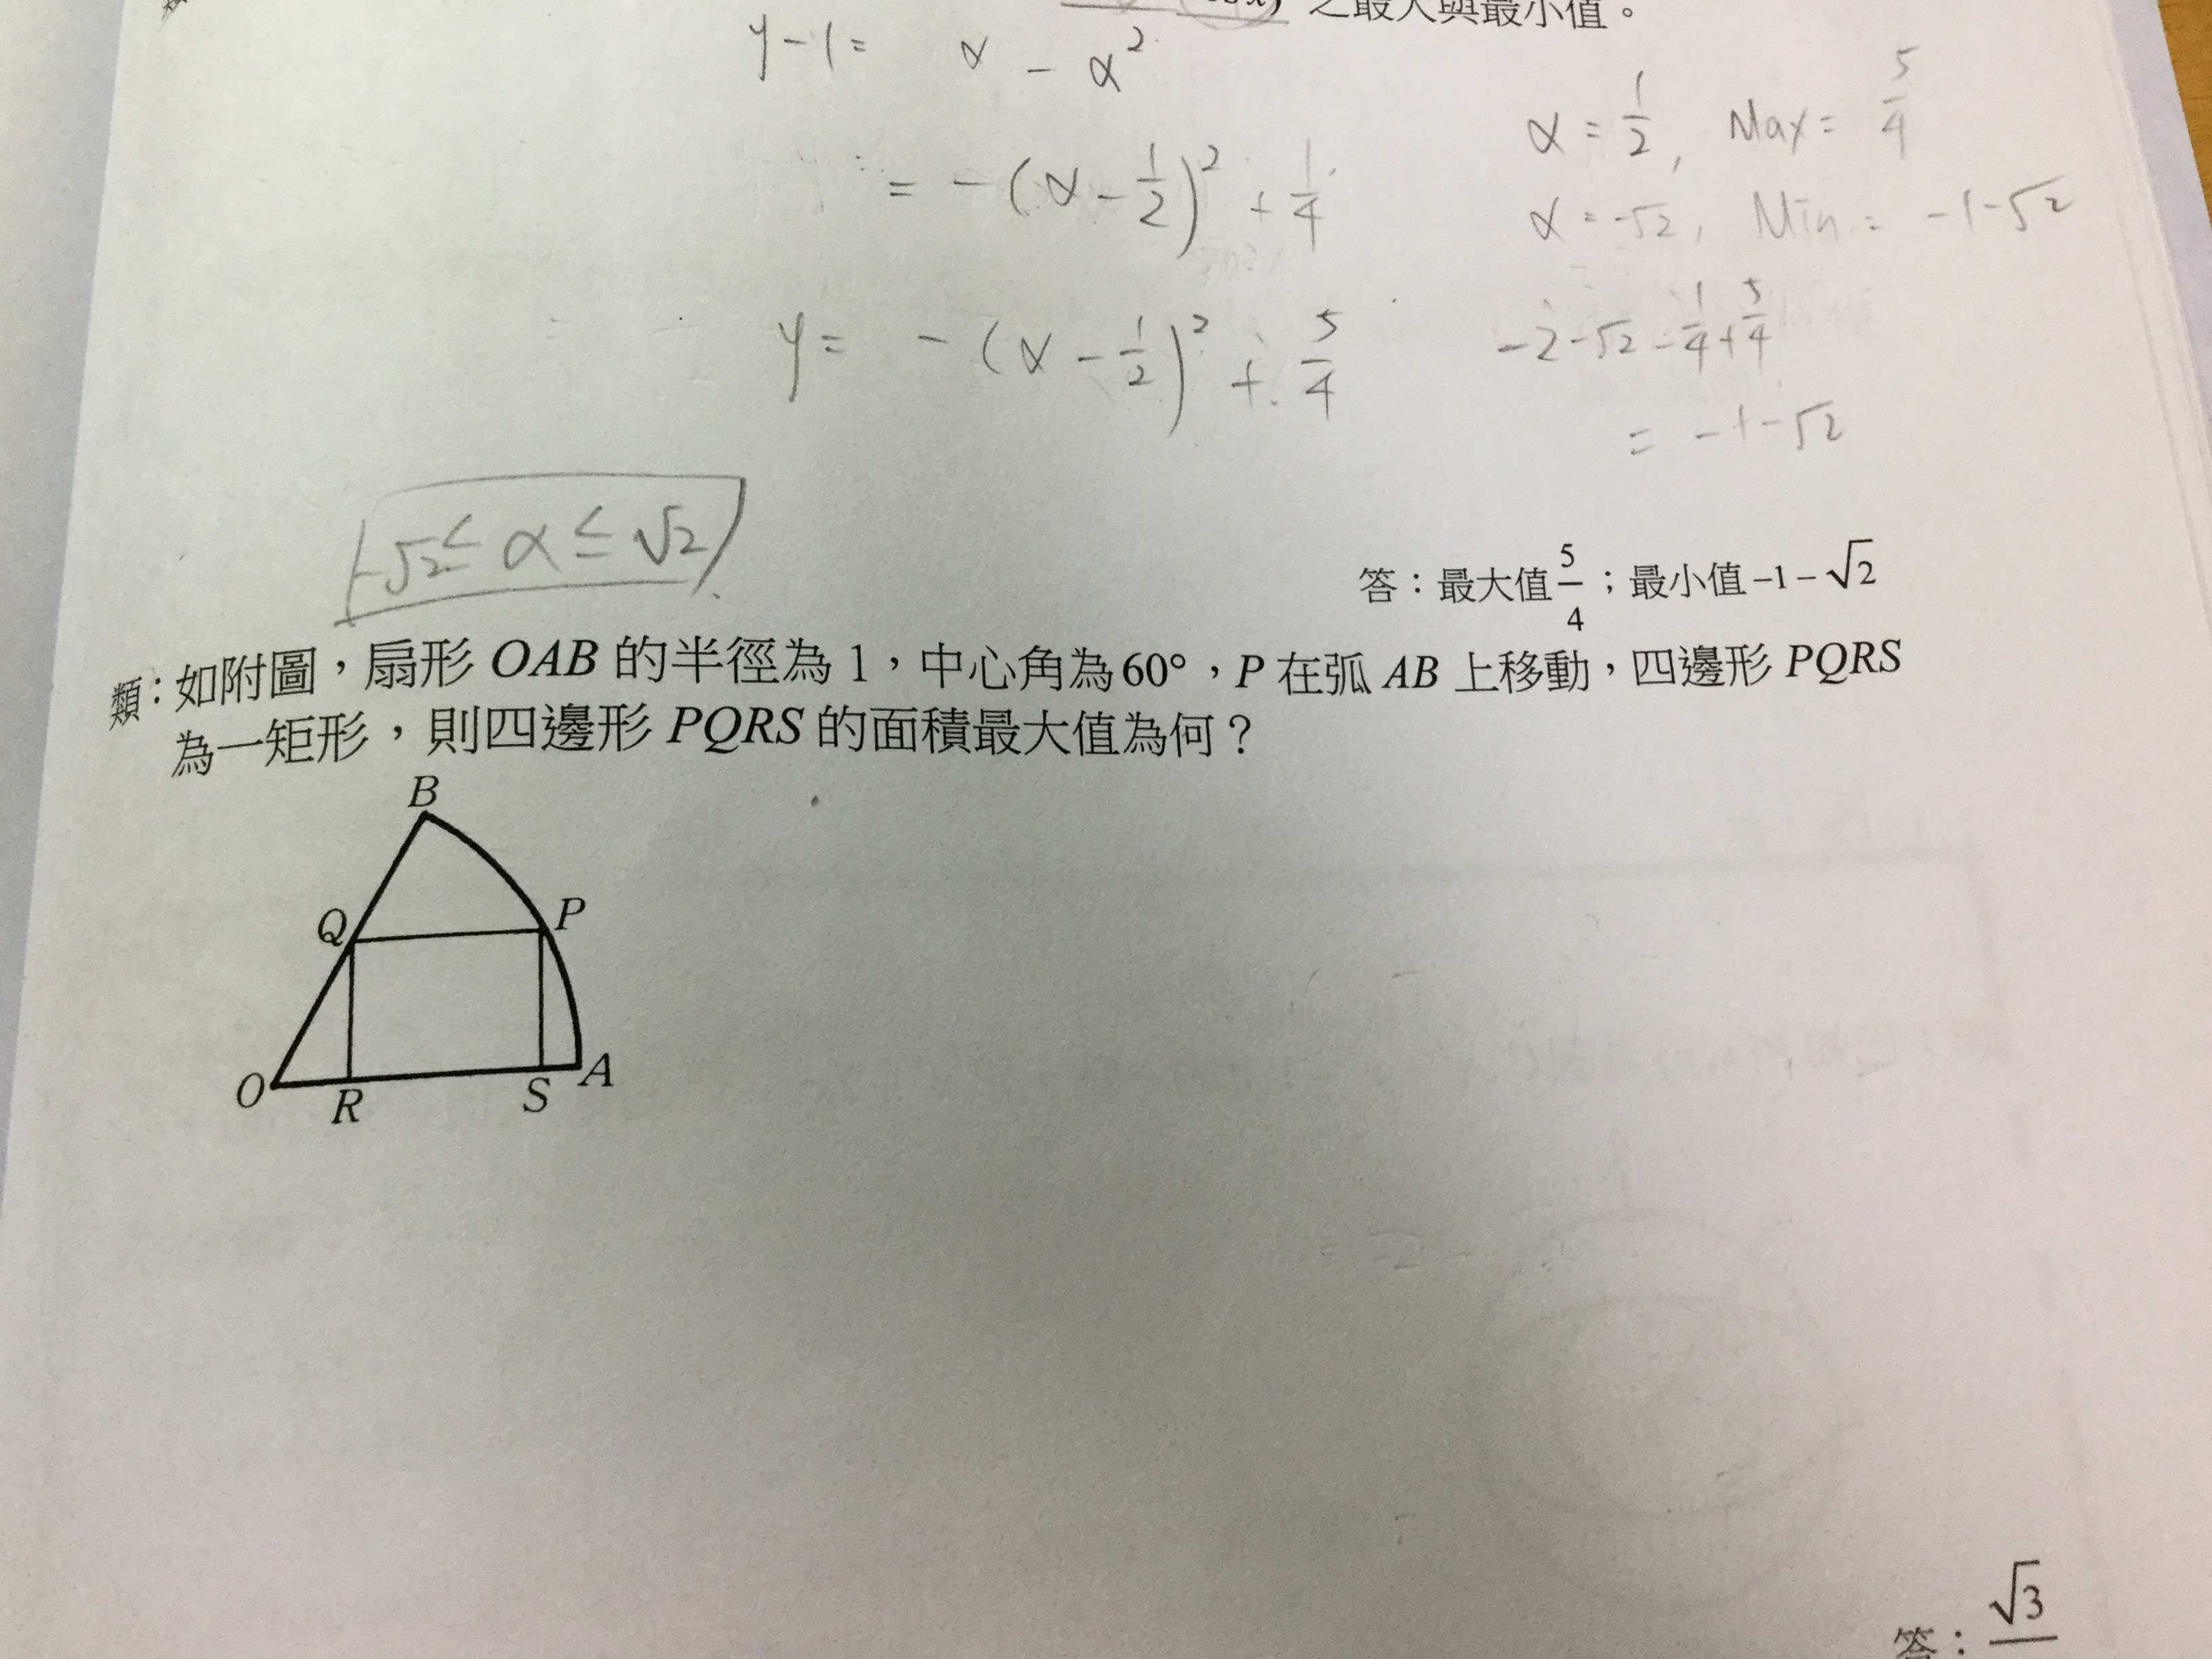 之最大與最小值。
y-1= α - α²
= -(α-1/2)² + 1/4
y= -(α-1/2)² + 5/4
α = 1/2, Max= 5/4
α = -√2, Min = -1-√2
-2-√2-1/4+5/4
= -1-√2
-√2 ≤ α ≤ √2
答：最大值 5/4；最小值 -1-√2
類：如附圖，扇形 OAB 的半徑為 1，中心角為 60°，P 在弧 AB 上移動，四邊形 PQRS
為一矩形，則四邊形 PQRS 的面積最大值為何？
B
Q
P
O
R
S
A
答：√3